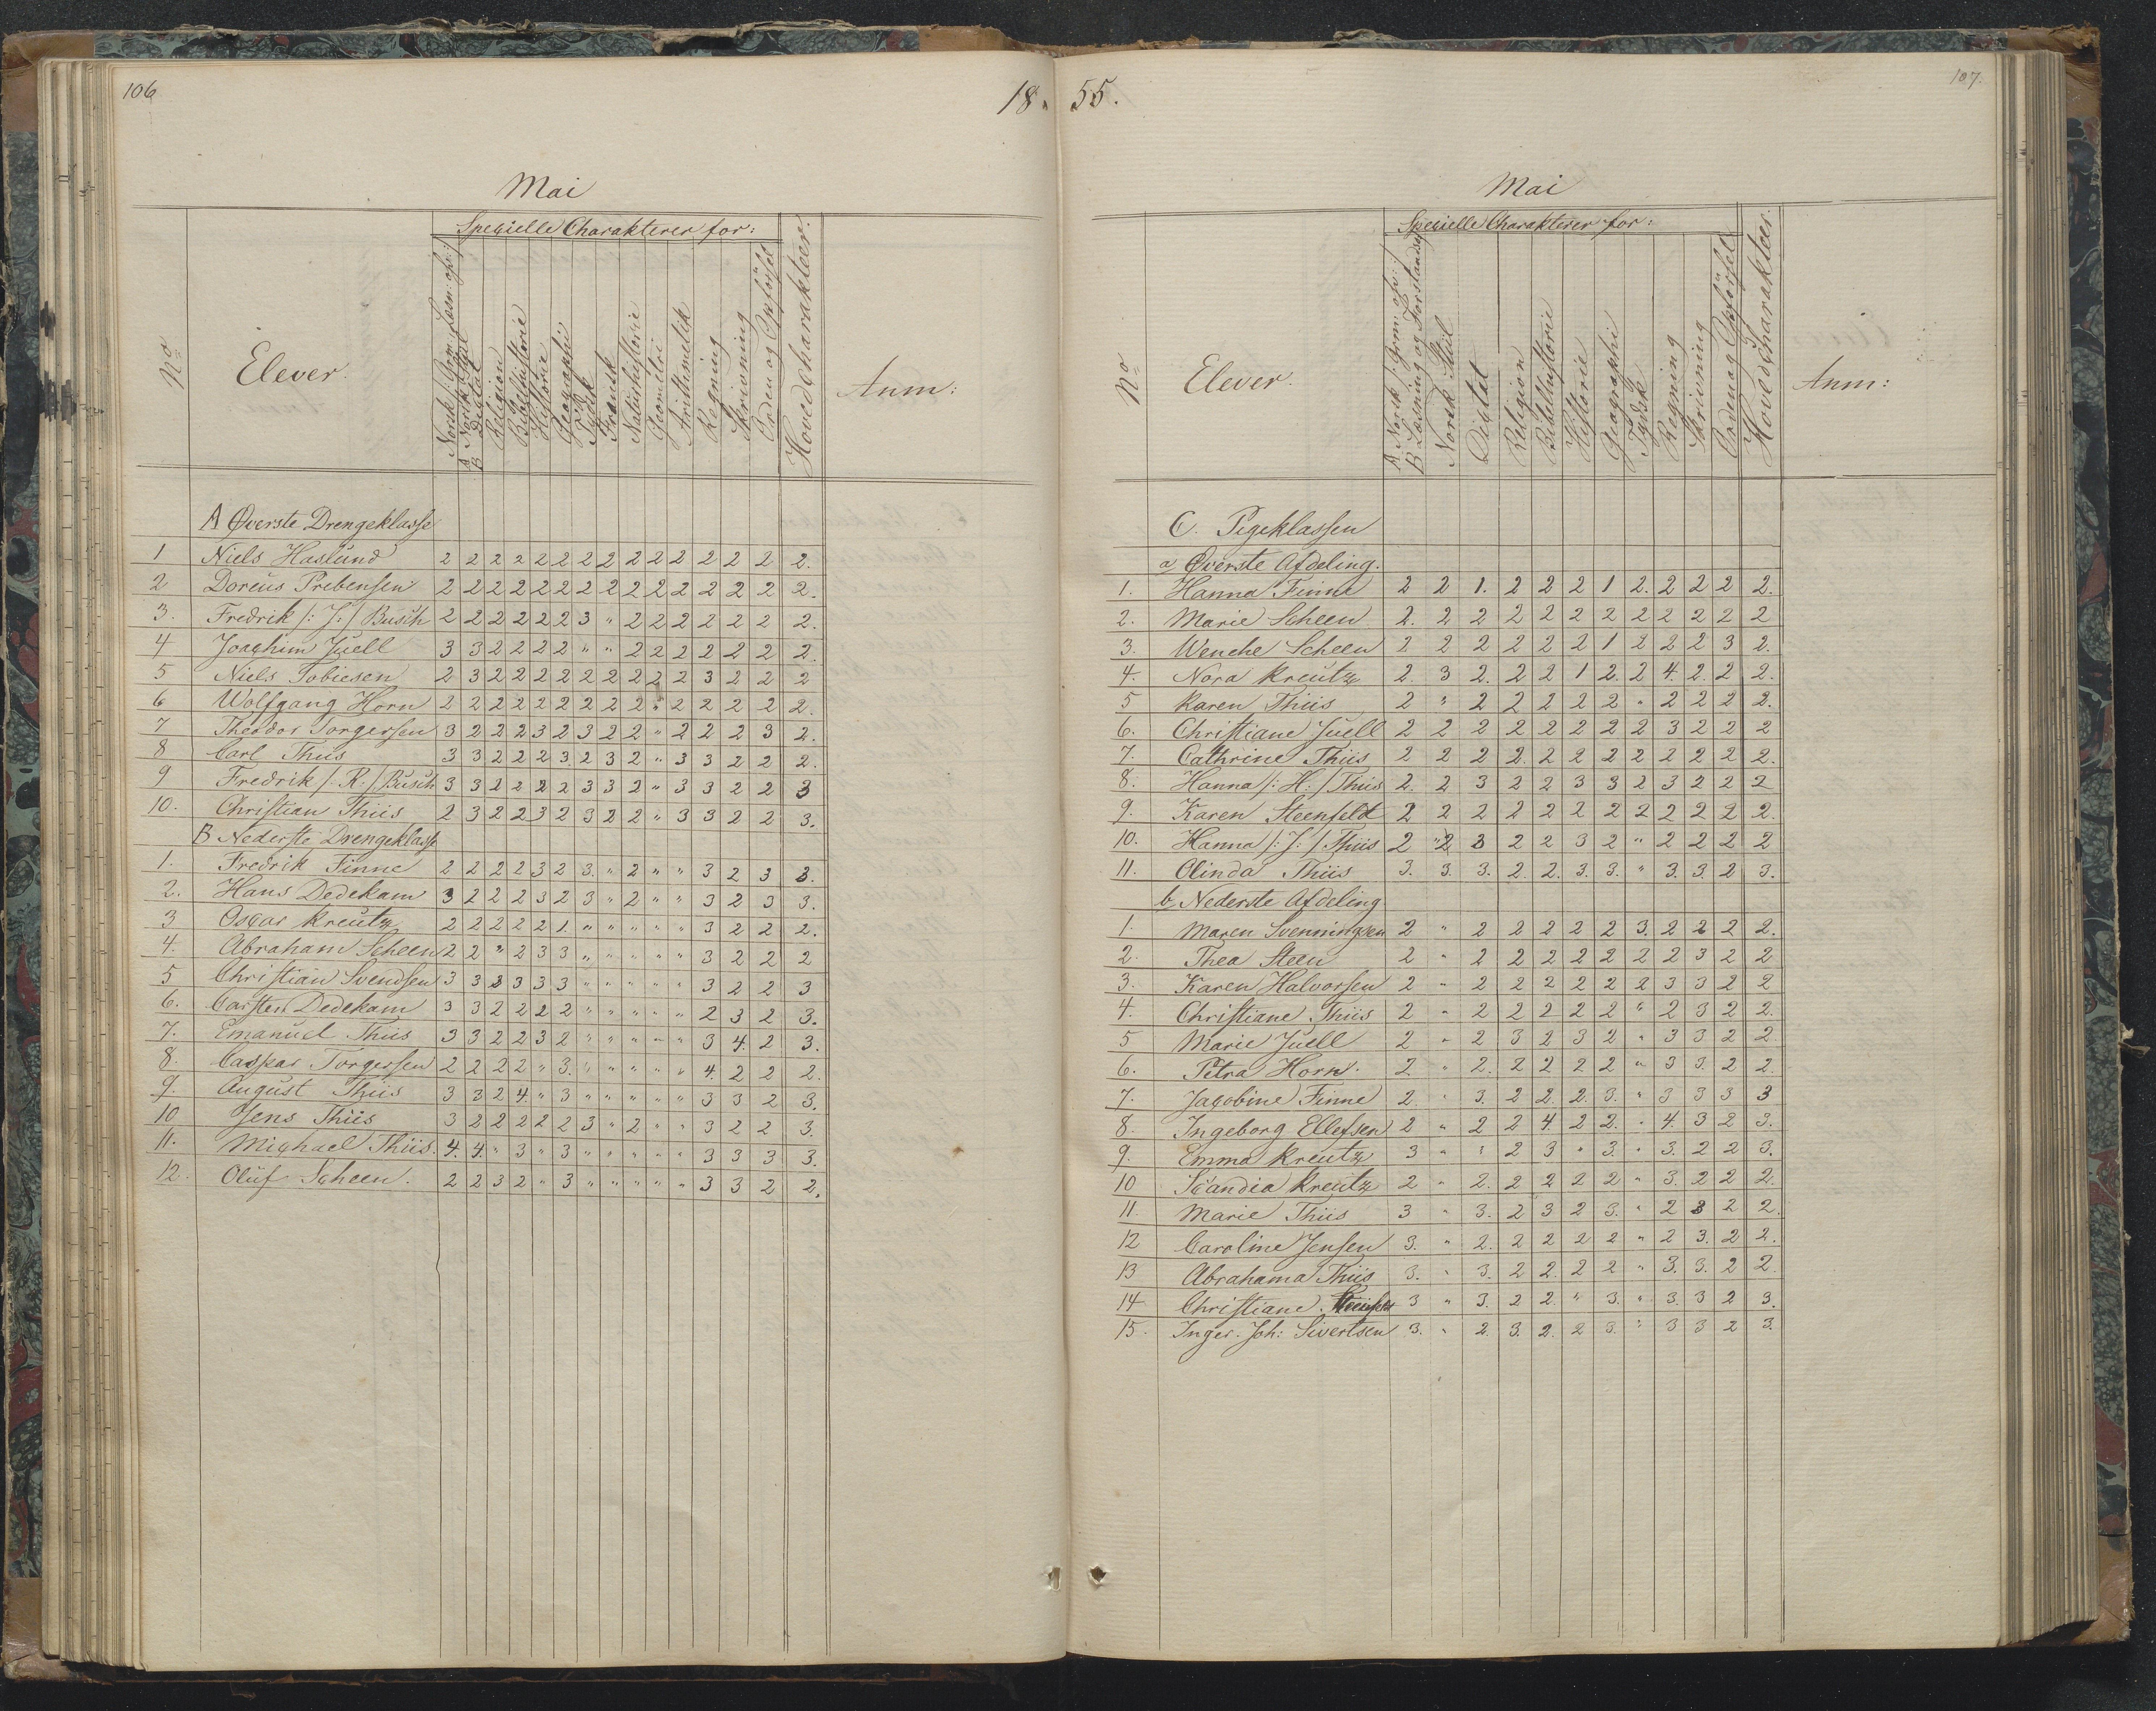 106
18
Mai
No
Elever.
Specielle Charakterer for:
Religion
Bibelhistorie
Historie
Geographi
Tydsk
Fransk
Naturhistorie
Geometri
Arithmetik
Regning
Skrivning
Orden og Opførsel
Hovedcharakteer.
Anm:
A Øverste Drengeklasse
1 Niels Haslund 2 2 2 2 2 2 2 2 2 2 2 2 2 2 2.
2 Doreus Prebensen 2 2 2 2 2 2 2 2 2 2 2 2 2 2 2.
3. Fredrik /: J: / Busch 2 2 2 2 2 2 3 " 2 2 2 2 2 2 2.
4 Joachim Juell 3 3 2 2 2 2 " " 2 2 2 2 2 2 2.
5 Niels Tobiesen 2 3 2 2 2 2 2 2 2 2 2 3 2 2 2
6 Wolfgang Horn 2 2 2 2 2 2 2 2 2 " 2 2 2 2 2.
7 Theodor Torgersen 3 2 2 2 3 2 3 2 2 " 2 2 2 3 2.
8 Carl Thiis 3 3 2 2 2 3. 2 3 2 " 3 3 2 2 2.
9 Fredrik /: R: / Busch 3 3 2 2 2 2 3 3 2 " 3 3 2 2 3
10. Christian Thiis 2 3 2 2 3 2 3 2 2 " 3 3 2 2 3.
B Nederste Drengeklasse
1. Fredrik Finne 2 2 2 2 3 2 3. " 2 " " 3 2 3 3.
2. Hans Dedekam 3 2 2 2 3 2 3 " 2 " " 3 2 3 3.
3 Oscar Kreutz 2 2 2 2 2 1. " " " " " 3 2 2 2.
4. Abraham Scheen 2 2 " 2 3 3 " " " " " 3 2 2 2
5 Christian Svendsen 3 3 3 3 3 3 " " " " " 3 2 2 3
6. Carsten Dedekam 3 3 2 2 2 2 " " " " " 2 3 2 3.
7. Emanuel Thiis 3 3 2 2 3 2 " " " " " 3 4. 2 3.
8. Caspar Torgersen 2 2 2 2 " 3. " " " " " 4. 2 2 2.
9. August Thiis 3 3 2 4. " 3 " " " " " 3 3 2 3.
10 Jens Thiis 3 2 2 2 2 2 3 " 2 " " 3 2 2 3.
11. Michael Thiis. 4. 4. " 3 " 3 " " " " " 3 3 3 3.
12. Oluf Scheen. 2 2 3 2 " 3 " " " " " 3 3 2 2.
107.
55.
Mai
No
Elever.
Specielle Charakterer for:
A Norsk /: Grm: ops: /
B Læsning og Forstandsø
Norsk Stiil
Dictat
Religion
Bibelhistorie
Historie
Geographi
Tydsk
Regning
Skrivning
Orden og Opførsel
Hovedcharakteer.
Anm:
C. Pigeklassen
a, Øverste Afdeling.
1. Hanna Finne 2 2 1. 2 2 2 1 2. 2 2 2 2.
2. Marie Scheen 2. 2 2 2 2 2 2 2 2 2 2 2
3. Wenche Scheen 2 2 2 2 2 2 1 2 2 2 3 2.
4. Nora Kreutz 2. 3 2. 2 2 1 2. 2 4. 2. 2 2.
5 Karen Thiis 2 " 2 2 2 2 2 " 2 2 2 2.
6. Christiane Juell 2 2 2 2 2 2 2 2 3 2 2 2
7. Cathrine Thiis 2 2 2 2. 2 2 2 2 2 2 2 2.
8. Hanna /: H: / Thiis 2. 2 3 2 2 3 3 2 3 2 2 2
9. Karen Steenfeldt 2 2 2 2 2 2 2 2 2 2 2 2.
10. Hanna /: J: / Thiis 2 " 2 3 2 2 3 2 " 2 2 2 2
11. Olinda Thiis 3. 3. 3. 2. 2. 3. 3. " 3. 3. 2 3.
b, Nederste Afdeling
1. Maren Svenningsen 2 " 2 2 2 2 2 3. 2 2 2 2.
2. Thea Steen 2 " 2 2 2 2 2 2 2 3 2 2
3. Karen Halvorsen 2 " 2 2 2 2 2 2 3 3 2 2
4. Christiane Thiis 2 " 2 2 2 2 2 " 2 3 2 2.
5 Marie Juell 2 " 2 3 2 3 2 " 3 3 2 2
6. Petra Horn. 2 " 2. 2 2 2 2 " 3 3. 2 2.
7. Jacobine Finne 2. " 3. 2 2. 2. 3. " 3 3 3 3
8. Ingeborg Ellefsen 2 " 2 2 4 2 2. " 4. 3 2 3.
9. Emma Kreutz 3 " " 2 3 " 3. " 3. 2 2 3.
10 Scandia Kreutz 2 " 2. 2 2 2 2 " 3. 2 2 2.
11. Marie Thiis 3 " 3. 2 3 2 3. " 2 3 2 2.
12 Caroline Jensen 3. " 2. 2 2 2 2 " 2 3. 2 2.
13 Abrahama Thiis 3. " 3. 2 2. 2 2 " 3. 3. 2 2.
14 Christiane 3 " 3. 2 2. " 3. " 3. 3 2 3.
15. Inger. Joh: Sivertsen 3. " 2. 3. 2. 2 3. " 3 3 2 3.